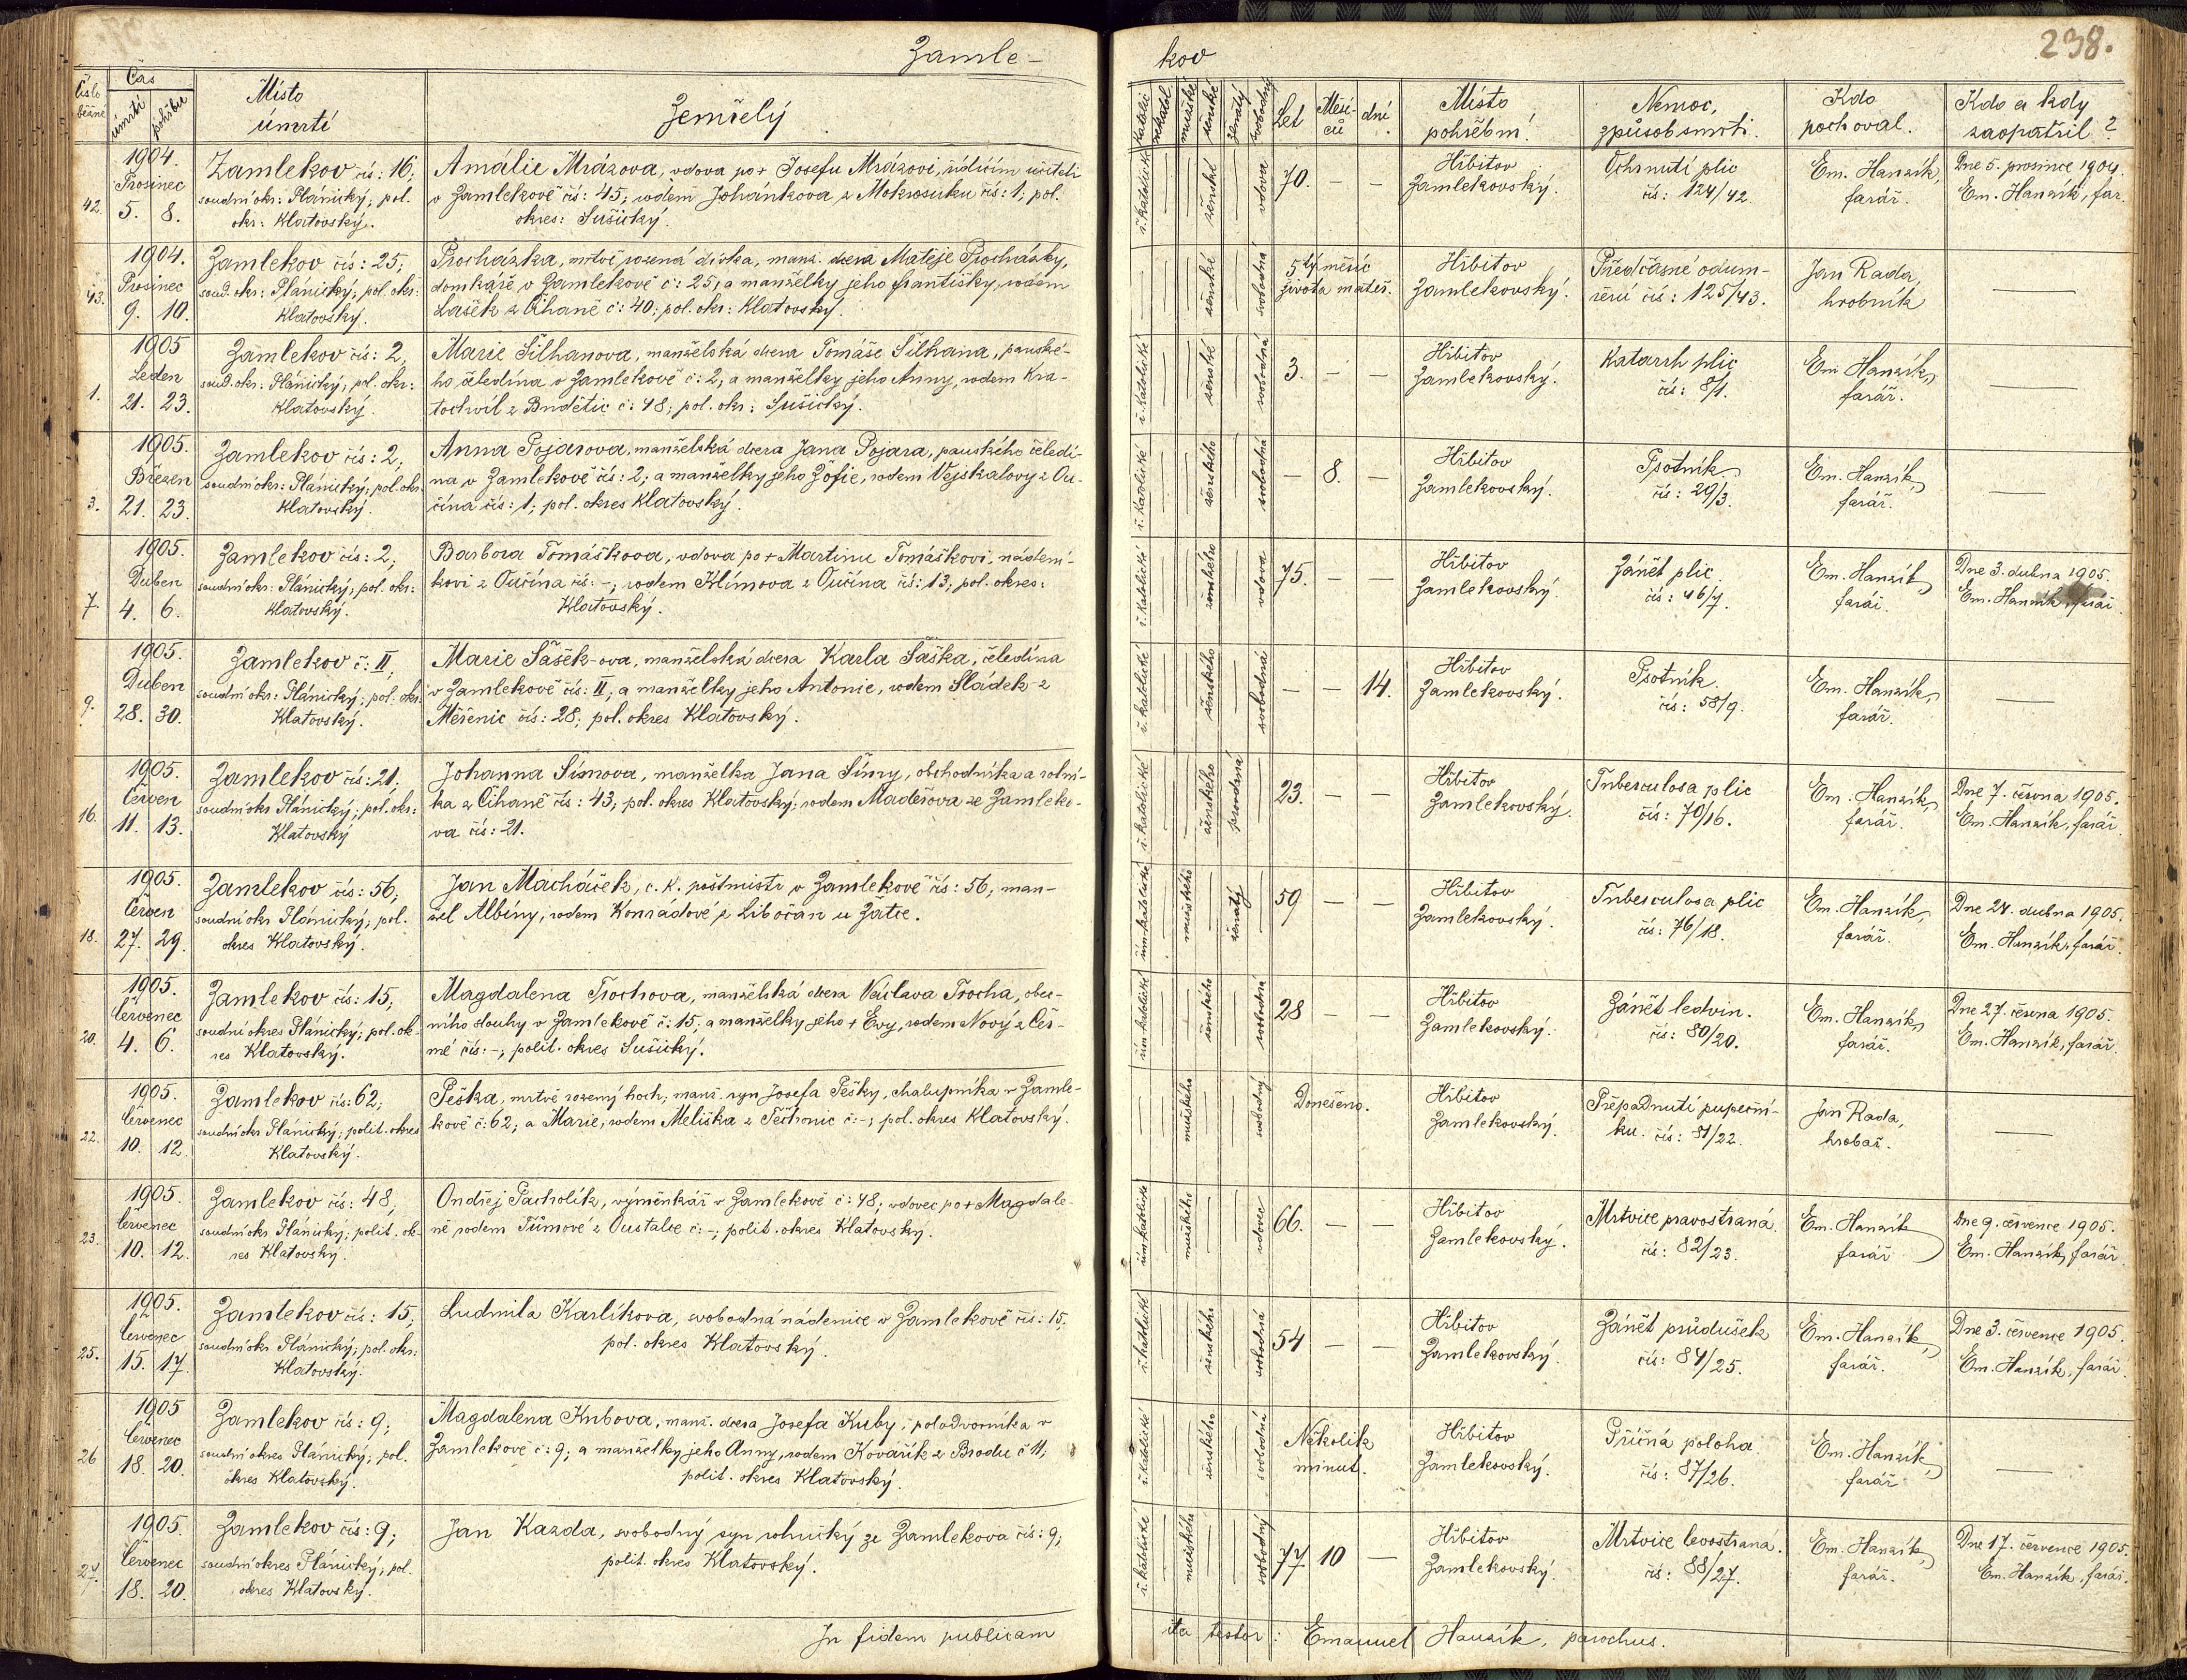 Zamle-
kov
238.
Číslo běžné
Čas
úmrtí pohřbu
Místo
úmrtí
Zemřelý
katolic
nekatol.
mužské
ženské
ženatý
svobodný
Let
Měsí-
ců
dní
Místo
pohřební
Nemoc,
způsob smrti.
Kdo
pochoval.
Kdo a kdy
zaopatřil?
42.
1904.
Prosinec
5. 8.
Zamlekov čís: 16;
soudní okr: Plánický; pol.
okr: Klatovský.
Amálie Mrázova, vdova po + Josefu Mrázovi, řídícím učiteli
v Zamlekově čís: 45; rodem Johánkova z Mokrosuku čís: 1; pol.
okres: Sušický.
ř. katolické
ženské
vdova
70. — —
Hřbitov
Zamlekovský.
Ochrnutí plic
čís: 124/42.
Em. Hanzík,
farář.
Dne 5. prosince 1904.
Em. Hanzík, far.
43.
1904.
Prosinec
9. 10.
Zamlekov čís: 25;
soud. okr: Plánický; pol. okr:
Klatovský.
Procházka, mrtvě rozená dívka, manž. dcera Matěje Procházky,
domkáře v Zamlekově č: 25, a manželky jeho Františky, rodem
Lašek z Čihaně č: 40; pol. okr: Klatovský.
ženské
svobodná
5tý měsíc
života mateř.
Hřbitov
Zamlekovský.
Předčasné odum-
ření čís: 125/43.
Jan Rada,
hrobník
—
1.
1905
Leden
21. 23.
Zamlekov čís: 2,
soud. okr: Plánický; pol. okr:
Klatovský.
Marie Silhanova, manželská dcera Tomáše Silhana, panské-
ho čeledína v Zamlekově č: 2, a manželky jeho Anny, rodem Kra-
tochwíl z Budětic č: 48; pol. okr: Sušický.
ř. katolické
ženské
svobodná
3. — —
Hřbitov
Zamlekovský.
Katarrh plic
čís: 8/1.
Em Hanzík,
farář.
—
3.
1905.
Březen
21. 23.
Zamlekov čís: 2;
soudní okr: Plánický; pol. okr.
Klatovský.
Anna Pojarova, manželská dcera Jana Pojara, panského čeledí-
na v Zamlekově čís: 2; a manželky jeho Žofie, rodem Vejskalovy z Ou-
čína čís: 1; pol. okres Klatovský.
ř. katolické
ženského
svobodná
— 8. —
Hřbitov
Zamlekovský.
Psotník
čís: 29/3.
Em. Hanzík,
farář.
—
7.
1905.
Duben
4. 6.
Zamlekov čís: 2;
soudní okr: Plánický; pol. okr:
Klatovský.
Barbora Tomáškova, vdova po + Martinu Tomáškovi, nádení-
kovi z Oučína čís: -; rodem Klímova z Oučína čís: 13; pol. okres:
Klatovský.
ř. katolické
ženského
vdova
75. — —
Hřbitov
Zamlekovský.
Zánět plic.
čís: 46/7.
Em. Hanzík,
farář.
Dne 3. dubna 1905.
Em. Hanzík, farář
9.
1905.
Duben
28. 30.
Zamlekov č: II,
soudní okr: Plánický; pol. okr:
Klatovský.
Marie Šašek-ova, manželská dcera Karla Šaška, čeledína
v Zamlekově čís: II; a manželky jeho Antonie, rodem Sládek z
Měšenic čís: 28; pol. okres Klatovský.
ř. katolické
ženského
svobodná
— — 14.
Hřbitov
Zamlekovský.
Psotník.
čís: 58/9.
Em. Hanzík,
farář.
—
16.
1905.
Červen
11. 13.
Zamlekov čís: 21,
soudní okr Plánický; pol. okr:
Klatovský
Johanna Šímova, manželka Jana Šímy, obchodníka a rolní-
ka z Čihaně čís: 43; pol. okres Klatovský; rodem Maděrova ze Zamleko-
va čís: 21.
ř. katolické
ženského
provdaná
23. — —
Hřbitov
Zamlekovský.
Tuberculosa plic
čís: 70/16.
Em. Hanzík,
farář.
Dne 7. června 1905.
Em. Hanzík, farář
18.
1905.
Červen
27. 29.
Zamlekov čís: 56,
soudní okr Plánický; pol.
okres Klatovský.
Jan Macháček, c. k. poštmistr v Zamlekově čís: 56, man-
žel Albíny, rodem Konrádové z Libočan u Žatce.
řím katolické
mužského
ženatý
59 — —
Hřbitov
Zamlekovský.
Tuberculosa plic
čís: 76/18.
Em. Hanzík,
farář.
Dne 24. dubna 1905.
Em. Hanzík, farář
20.
1905.
Červenec
4. 6.
Zamlekov čís: 15;
soudní okres Plánický; pol. ok-
res Klatovský.
Magdalena Trochova, manželská dcera Václava Trocha, obec-
ního slouhy v Zamlekově č: 15; a manželky jeho + Evy, rodem Nový z Čer-
né čís: -; polit. okres Sušický.
řím katolické
ženského
svobodná
28 — —
Hřbitov
Zamlekovský.
Zánět ledvin.
čís: 80/20.
Em. Hanzík,
farář.
Dne 27. června 1905.
Em. Hanzík, farář.
22.
1905.
Červenec
10. 12.
Zamlekov čís: 62;
soudní okr Plánický; polit. okres
Klatovský.
Peška, mrtvě rozený hoch; manž. syn Josefa Pešky, chalupníka v Zamle-
kově č: 62; a Marie, rodem Meliška z Těchonic č: -; pol. okres Klatovský.
mužského
svobodný
Donešeno.
Hřbitov
Zamlekovský.
Přepadnutí pupeční-
ku. čís: 81/22.
Jan Rada,
hrobař.
—
23.
1905.
Červenec
10. 12.
Zamlekov čís: 48,
soudní okr Plánický; polit. ok-
res Klatovský.
Ondřej Pacholík, výměnkář v Zamlekově č: 48; vdovec po + Magdale-
ně rodem Tůmové z Oustalče č: -; polit. okres Klatovský.
řím katolické
mužského
vdovec
66. — —
Hřbitov
Zamlekovský.
Mrtvice pravostraná.
čís: 82/23.
Em. Hanzík
farář
Dne 9. července 1905.
Em. Hanzík, farář
25.
1905.
Červenec
15. 17.
Zamlekov čís: 15,
soudní okr Plánický; pol. okr:
Klatovský.
Ludmila Karlíkova, svobodná nádenice v Zamlekově čís: 15;
pol. okres Klatovský.
ř. katolické
ženského
svobodná
54 — —
Hřbitov
Zamlekovský.
Zánět průdušek
čís: 84/25.
Em. Hanzík,
farář.
Dne 3. července 1905.
Em. Hanzík, farář
26
1905
Červenec
18. 20.
Zamlekov čís: 9;
soudní okres Plánický; pol.
okres Klatovský.
Magdalena Kubova, manž. dcera Josefa Kuby, polodvorníka v
Zamlekově č: 9; a manželky jeho Anny, rodem Kovářík z Brodu č 11;
polit. okres Klatovský.
ř. katolické
ženského
svobodná
Několik
minut.
Hřbitov
Zamlekovský.
Příčná poloha
čís: 87/26.
Em. Hanzík,
farář
—
27.
1905.
Červenec
18. 20.
Zamlekov čís: 9;
soudní okres Plánický; pol.
okres Klatovský.
Jan Kazda, svobodný syn rolnický ze Zamlekova čís: 9;
polit. okres Klatovský.
ř. katolické
mužského
svobodný
77. 10 —
Hřbitov
Zamlekovský.
Mrtvice levostraná.
čís: 88/27.
Em. Hanzík,
farář.
Dne 17. července 1905.
Em. Hanzík, farář.
In fidem publicam
ita testor: Emanuel Hanzík, parochus.